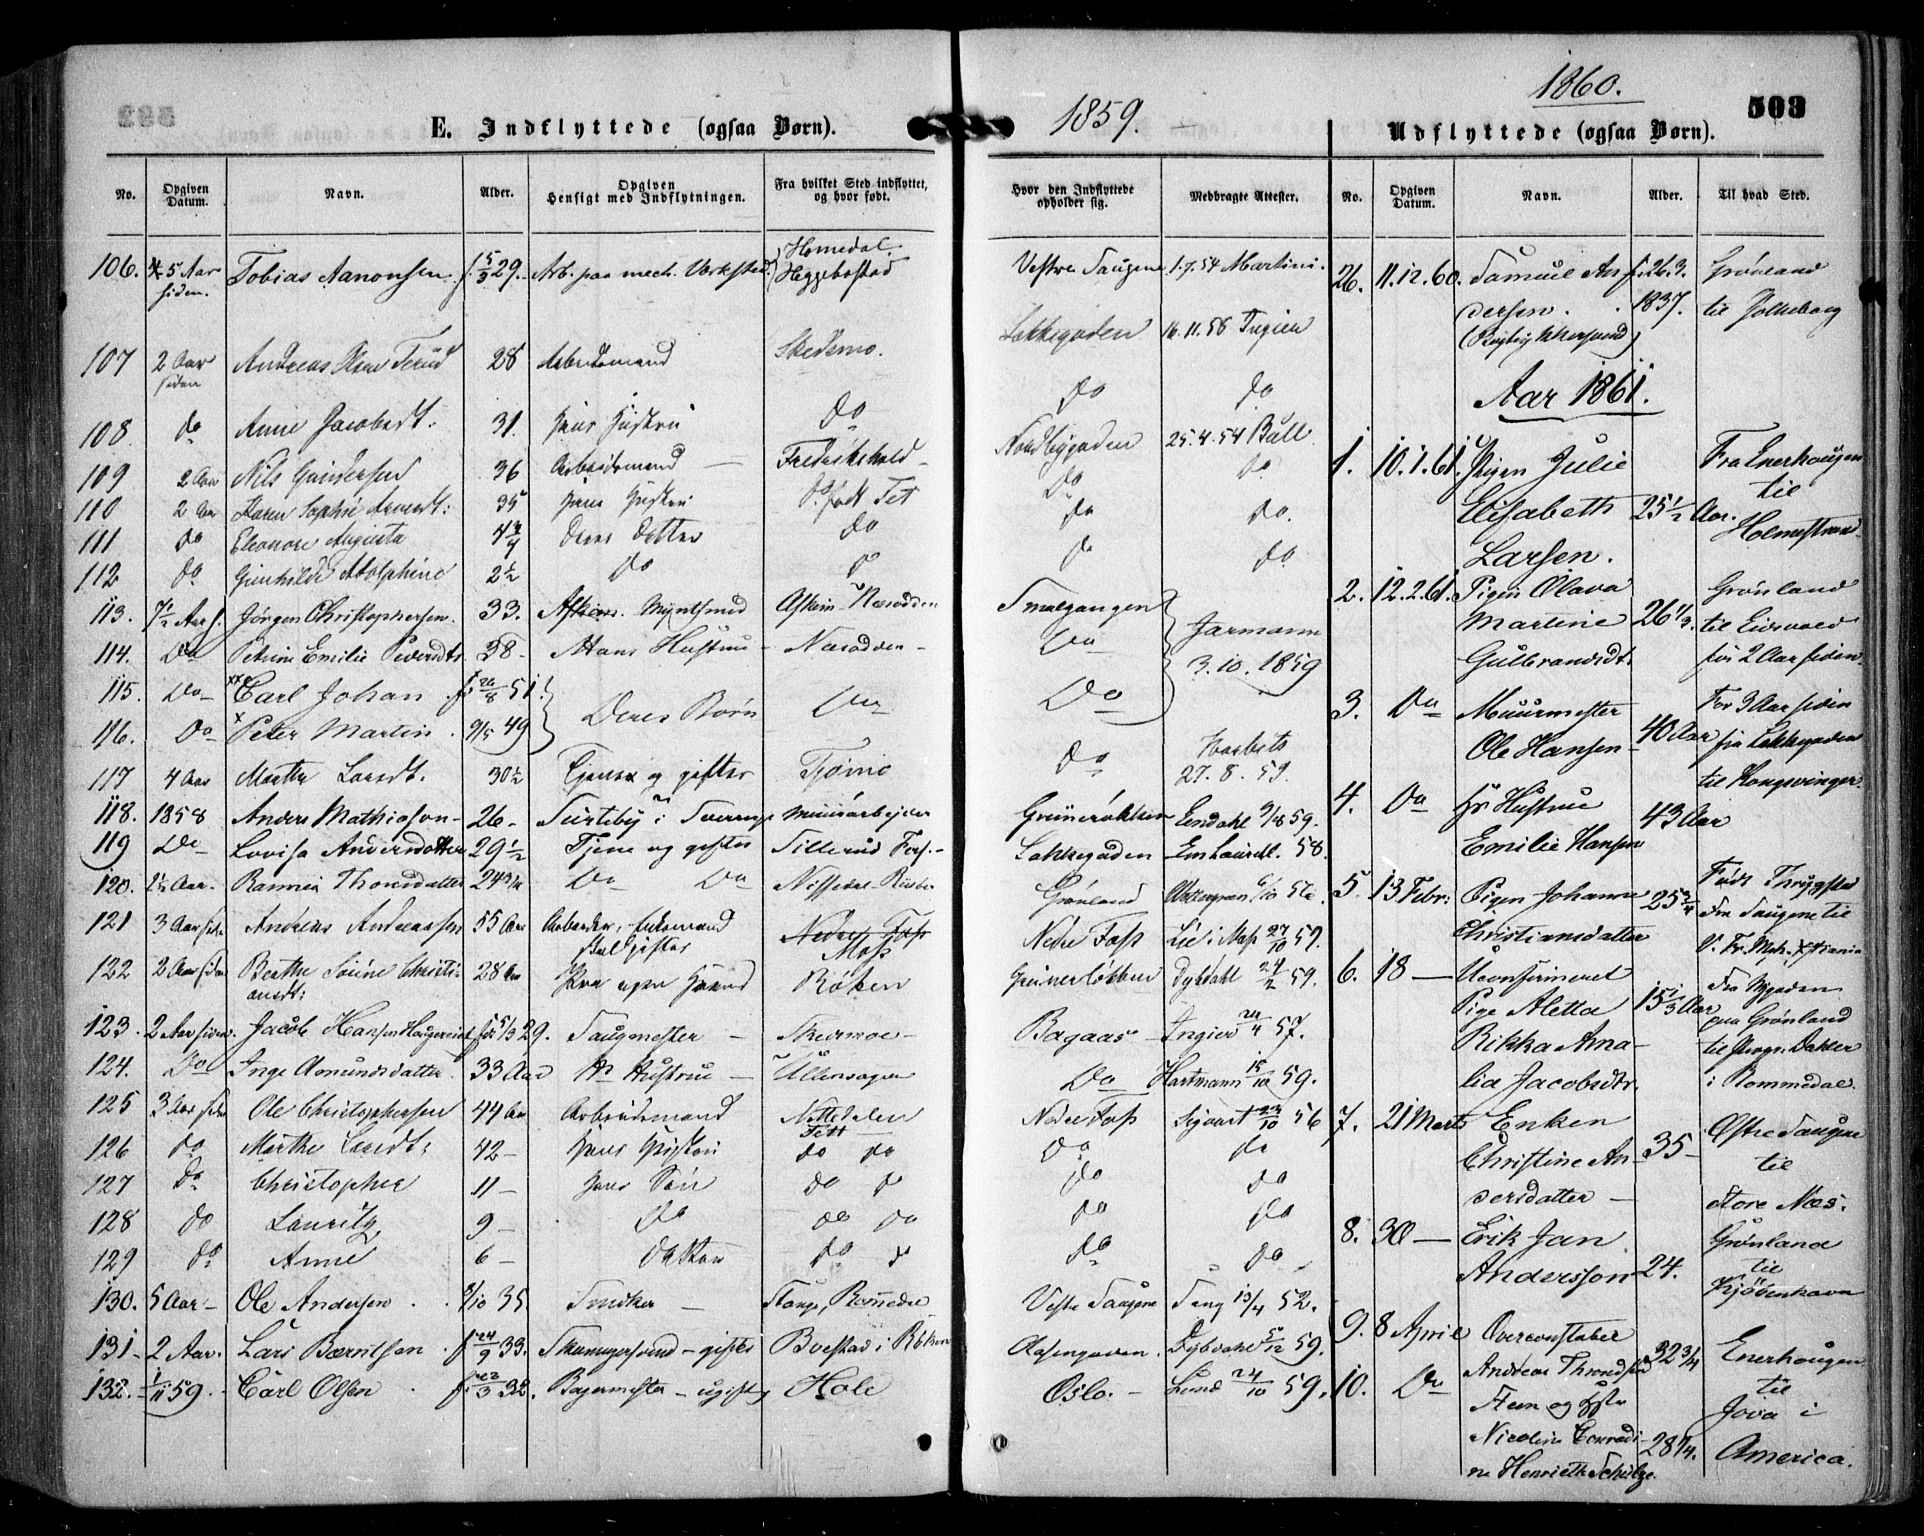 1860.
503
E. Indflyttede (ogsaa Børn).
1859.
Udflyttede (ogsaa Børn).
No. Opgiven Datum. Navn. Alder. Opgiven Hensigt med Indflytningen. Fra hvilket Sted indflyttet, og hvor født. Hvor den Indflyttede opholder sig. Medbragte Attester.
106. 5 Aar siden. Tobias Aanonsen f. 5/3 29. Arb. paa mech. Værksted. Homedal Heggebostad Vestre Saugene 1.7.54 Martini.
107 2 Aar siden Andreas 28 Arbeidsmand Skedsmo. Lakkegaden 16.11.58
108 do Anne Jacobsdt. 31. Hans Hustru Do Do Do
109 2 Aar Nils Gundersen 36 Arbeidsmand — Fredrikshald Nordbygaden 25.4.54 Bull
110 2 Aar Karen Sophie 35 Hans Hustru Do født Do Do
111 do Eleonore Augusta 4 Deres Datter Do do do.
112 do Gunhilde Adolphine 2½ Do do do
113. 7½ Aar s. Jørgen Christophersen. 33. Myntsmed Askim Næsodden Smalgangen Jarmann 3.10.1859
114. Do Petrine Emilie 38- Hans Hustru - Næsodden - Do
115. Do- Carl Johan f. 51. Deres Børn Do Do
116. Do Peter Martin 9/5 49
117 4 Aar Marthe Larsdt. 30½ Tjener og gifter Tjømø do 27.8.59.
118. 1858 Anders Mathiason- 26- i Sverrige Muurarbejder Grünerløkken 59.
119 Do Lovisa Andersdatter 29½ Tjene og gifter Lakkegaden 58.
120. Aar. Thorsdatter 24 3/4 Do Do Nissedal Grønland 56
121 3 Aar siden Andreas Andreassen 55 Aar Arbeider, Enkemand skal gifter Moss Nedre Foss Lie i Moss 27/10 59.
122 2 Aar siden Berthe Christiansdt: 28 Aar Hans egen Haand Røken Grünerløkken Dybdahl 24/2 59.
123. 2 Aar siden. Jacob Hansen 29. Saugmester - Skedsmoe - Bagaas - Ingier 24/4 57.
124. Do Inge Asmundsdatter 33 Aar Hs Hustrue - Ullensager Do Hartmann 15/10 59.
125 3 Aar siden Ole Christophersen 44 Aar Arbeidsmand Nittedalen Nedre Foss Sigvart 23/10 56
126 do Marthe Larsdt: 42- Hans Hustru do do Do do
127 do Christopher 11- Hans Søn do do do do
128 do Lauritz 9- do do do do do
129 do Anne 6- Datter do do do do
130. 5 Aar - Ole Andersen 35. Snedker - Stange, Romedal Vestre Saugene Fang 13/4 52.
131- 2 Aar. Lars Berntsen f. 24/9 33. Skomagersvend - gifter i Røken Aasengaden. Dybdahl 59.
132. 59. Carl Olsen f. 22/3 32. Bagermester - ugift Hole Oslo. - Lund 24/10 59.
No. Opgiven Datum. Navn. Alder. Til hvad Sted.
26. 11.12.60. Samuel Andersen f. 26.3. 1837. Grønland til
Aar 1861.
1. 10.1.61. Pigen Julie Elisabeth Larsen. 25½ Aar. Fra Enerhougen til Holmestrand
2. 12.2.61. Pigen Olava Martine Gulbrandsdt. 26 1/3. Grønland til Eidsvold for 2 Aar siden
3. Do Muurmester Ole Hansen - 40 Aar For 3 Aar siden fra Lakkegaden til Kongsvinger
4. Do Hs Hustrue Emilie Hansen 43 Aar
5. 13 Febr: Pigen Johanne Christiansdatter 25 3/4 Født Trygstad Fra Saugene til
6. 18 - Uconfirmeret Pige Aletta Rikka Amalia Jacobsdtr. 15 1/3 Aar Fra Nygaden paa Grønland til i Rommedal.
7. 21 Marts Enken Christine Andersdatter - 35- Østre Saugene til Store Næs.
8. 30 - Erik Jan Andersson 24. Grønland til Kjöbenhavn
9. 8 April Overconstabel Andreas Throndsen 32 3/4 Enerhougen til Jova i America.
10. Do Steen og Hustr Nicoline Conradine Henriette Schulze. 28 1/4.